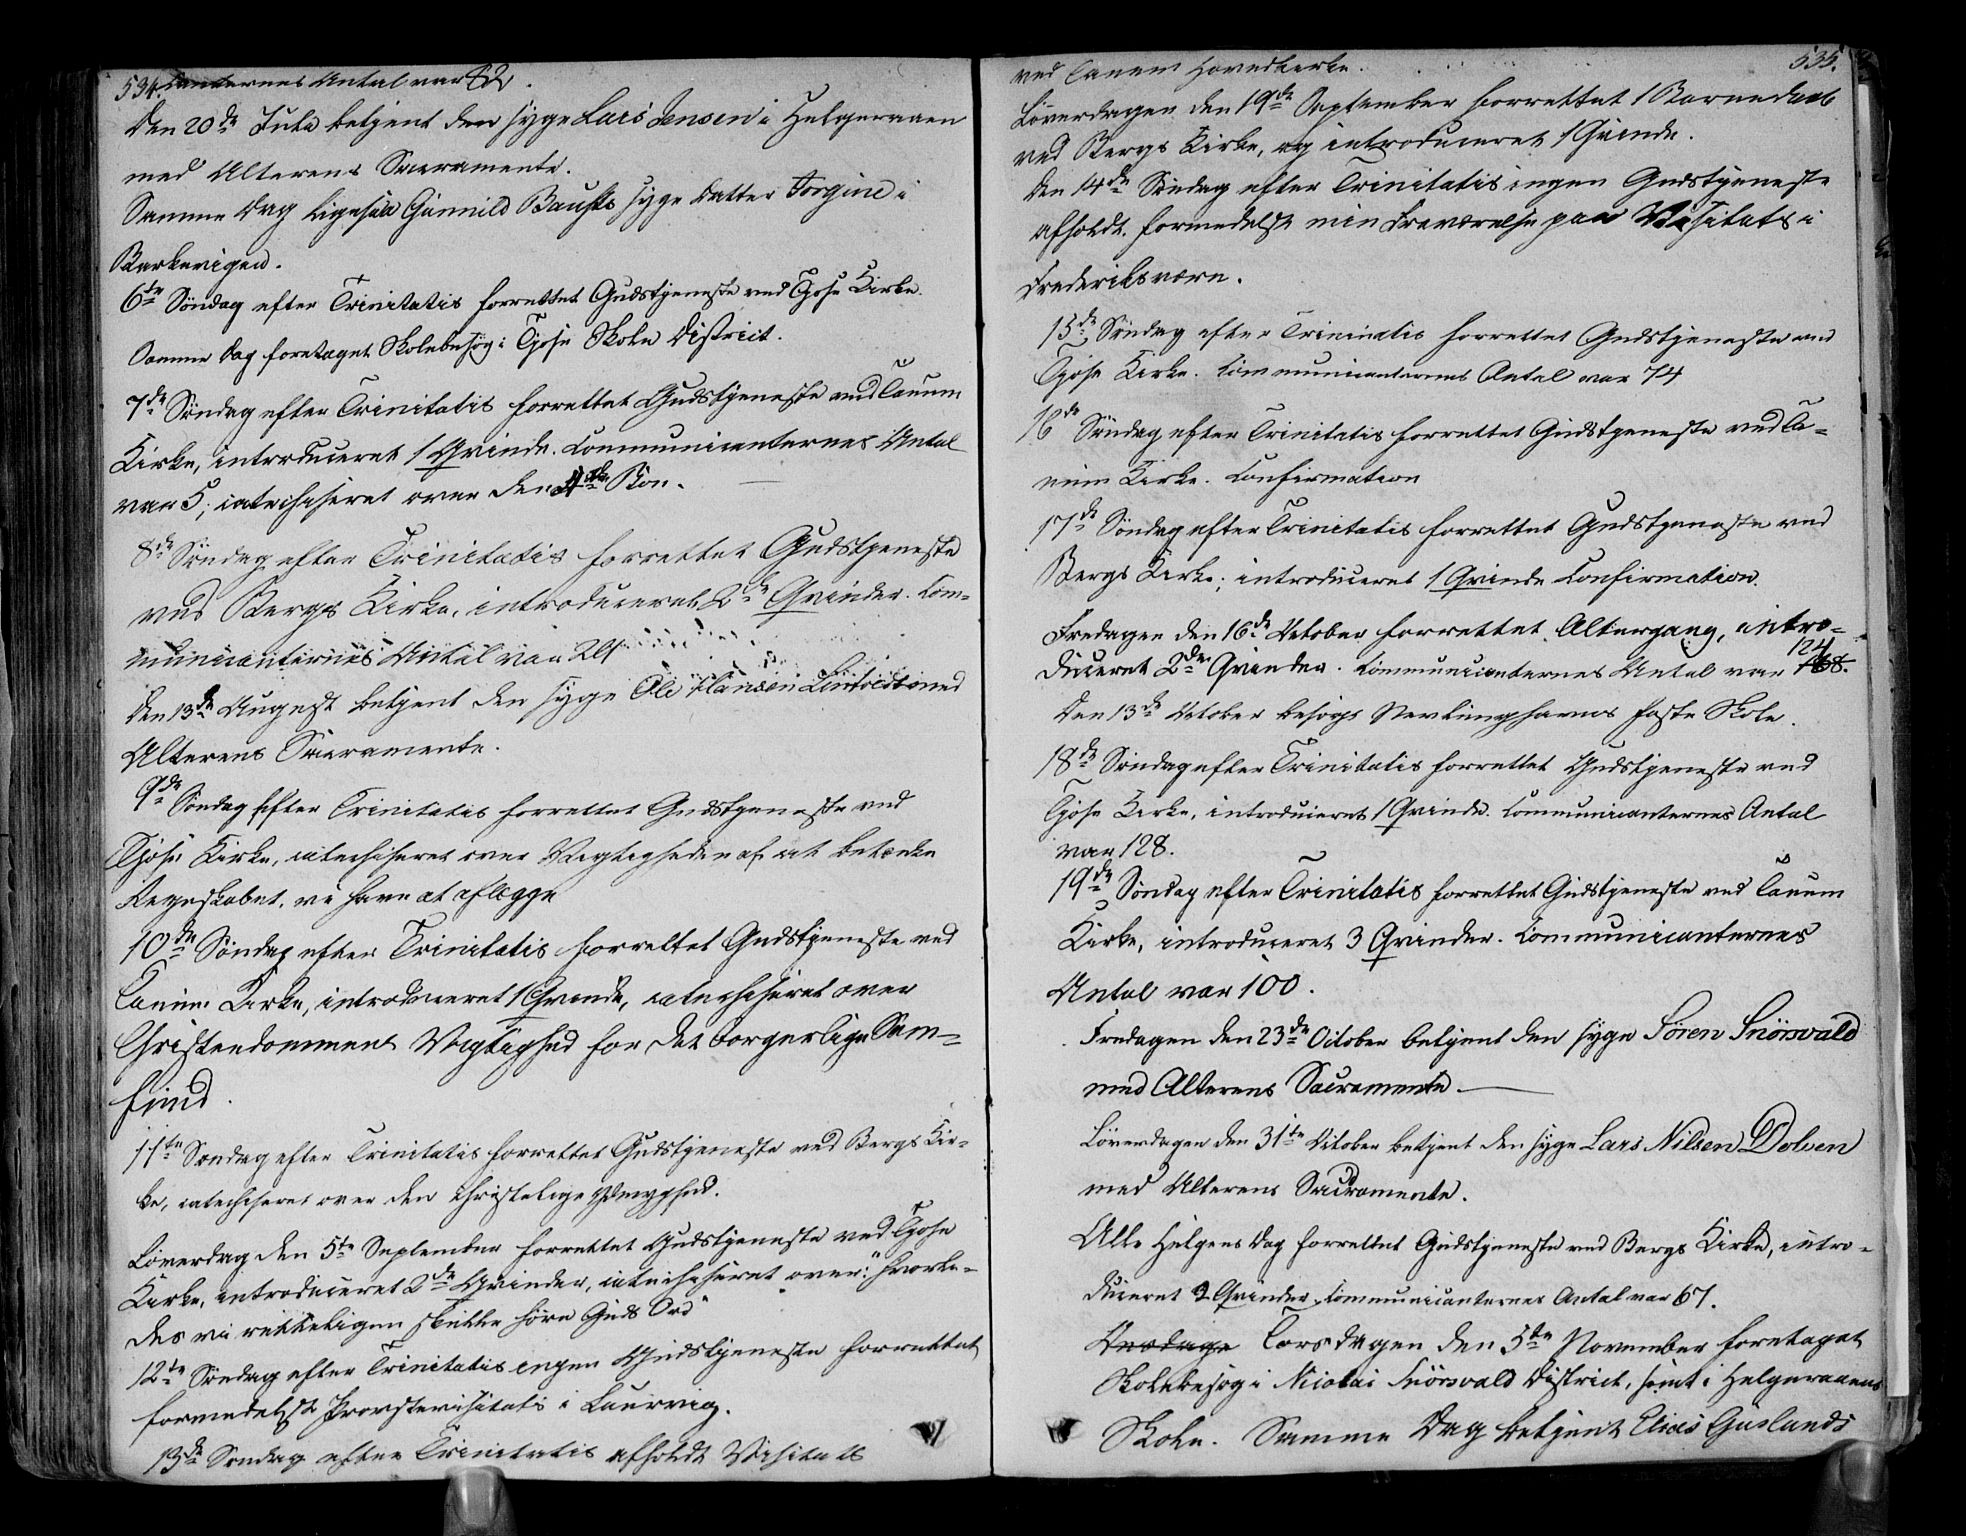 534. canternes Antal var 82.
Den 20de Julii betjent den syge Lars Jensen i Helgeraaen
med Alterens Sacramente.
Samme Dag ligesaa Gunnild Bauses syge Datter Torgine i
Barkevigen.
6te Søndag efter Trinitatis forrettet Gudstjeneste ved Tjose Kirke.
Samme Dag foretaget Skolebesøg i Tjose Skole District.
7de Søndag efter Trinitatis forrettet Gudstjeneste ved Tanum
Kirke, introduceret 1 Qvinde. Communicanternes Antal
var 5; catechiseret over den 4de Bøn.
8de Søndag efter Trinitatis forrettet Gudstjeneste
ved Bergs Kirke, introduceret 2de Qvinder. Com-
municanternes Antal var 24
Den 13de August betjent den syge Ole Hansen med
Alterens Sacramente.
9de Søndag efter Trinitatis forrettet Gudstjeneste ved
Tjose Kirke, catechiseret over Vigtigheden af at betænke
Regnskabet, vi have at aflægge
10de Søndag efter Trinitatis forrettet Gudstjeneste ved
Tanum Kirke, introduceret 1 Qvinde, catechiseret over
Christendommens Vigtighed for det borgerlige Sam-
fund.
11te Søndag efter Trinitatis forrettet Gudstjeneste ved Bergs Kir-
ke, catechiseret over den christelige Ydmyghed.
Løverdag den 5te September forrettet Gudstjeneste ved Tjose
Kirke, introduceret 2de Qvinder, catechiseret over: "hvorle-
des vi retteligen skulle høre Guds Ord"
12te Søndag efter Trinitatis ingen Gudstjeneste forrettet
formedelst Provstevisitats i Laurvig.
13de Søndag efter Trinitatis afholdt Visitats
535.
ved Tanum Hovedkirke.
Løverdagen den 19de September forrettet 1 Barnedaab
ved Bergs Kirke, og introduceret 1 Qvinde.
Den 14de Søndag efter Trinitatis ingen Gudstjeneste
afholdt formedelst min Fraværelse paa Visitats i
Frederiksværn.
15de Søndag efter Trinitatis forrettet Gudstjeneste ved
Tjose Kirke. Communicanternes Antal var 74
16de Søndag efter Trinitatis forrettet Gudstjeneste ved Ta-
num Kirke. Confirmation
17de Søndag efter Trinitatis forrettet Gudstjeneste ved
Bergs Kirke; introduceret 1 Qvinde Confirmation.
Fredagen den 16de October forrettet Altergang, intro-
duceret 2de Qvinder. Communicanternes Antal var 124
Den 13de October besøgt Nevlunghavns faste Skole.
18de Søndag efter Trinitatis forrettet Gudstjeneste ved
Tjose Kirke, introduceret 1 Qvinde. Communicanternes Antal
var 128.
19de Søndag efter Trinitatis forrettet Gudstjeneste ved Tanum
Kirke, introduceret 3 Qvinder. Communicanternes
Antal var 100.
Fredagen den 23de October betjent den syge Søren Snørsvald
med Alterens Sacramente
Løverdagen den 31te October betjent den syge Lars Nilsen Dolven
med Alterens Sacramente.
Alle Helgens Dag forrettet Gudstjeneste ved Bergs Kirke, intro-
duceret 2 Qvinder, Communicanternes Antal var 67.
Torsdagen den 5te November foretaget
Skolebesøg i Nicolai Snörsvald District, samt i Helgeraaens
Skole. Samme Dag betjent Elias Guslands